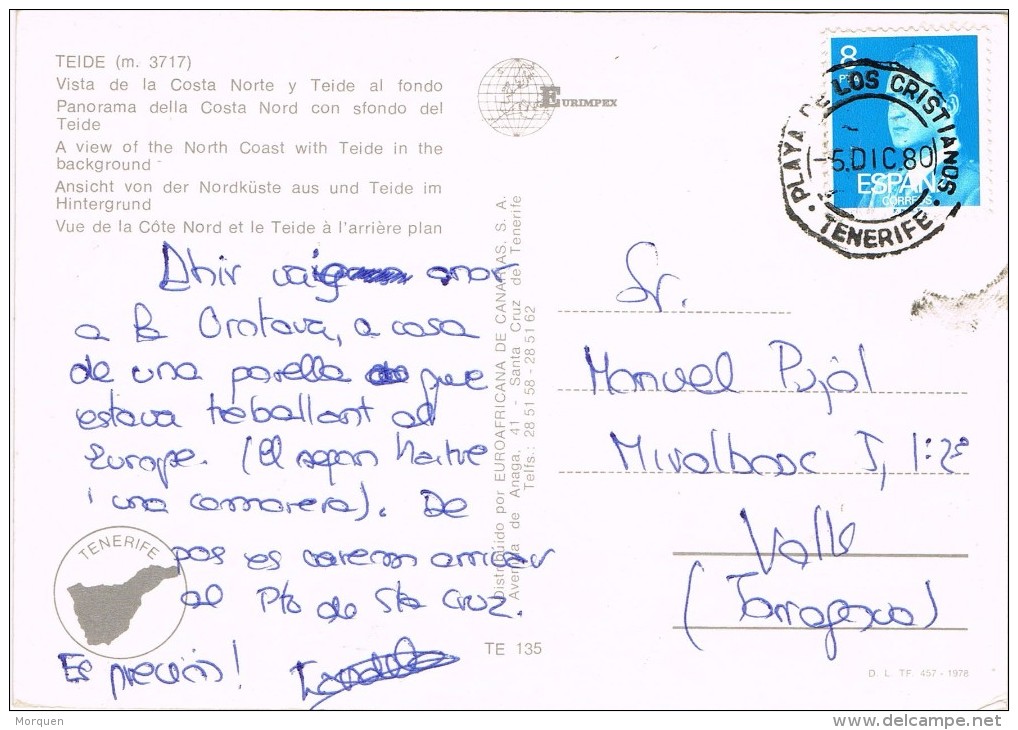 TEIDE (m. 3717)
Vista de la Costa Norte y Teide al fondo
Panorama della Costa Nord con sfondo del
Teide
A view of the North Coast with Teide in the
background
Ansicht von der Nordküste aus und Teide im
Hintergrund
Vue de la Côte Nord et le Teide à l'arrière plan
EURIMPEX
8
PTA
ESPAÑA
CORREOS
PLAYA DE LOS CRISTIANOS
-5.DIC.80
TENERIFE
Ahir anar
a la Orotava, a casa
de una parella que
estava treballant al
Europe. (El segon Maitre
i una camarera). De
pas es varem arribar
al Pto de Sta Cruz.
Es preciós!
TENERIFE
Distribuido por EUROAFRICANA DE CANARIAS. S. A.
Avenida de Anaga, 41 - Santa Cruz de Tenerife
Telfs.: 28 51 58 - 28 51 62
TE 135
Sr.
Manuel Pujol
Miralbosc 5, 1º 2ª
Valls
(Tarragona)
D. L. TF. 457 - 1978
Morquen
delcampe.net